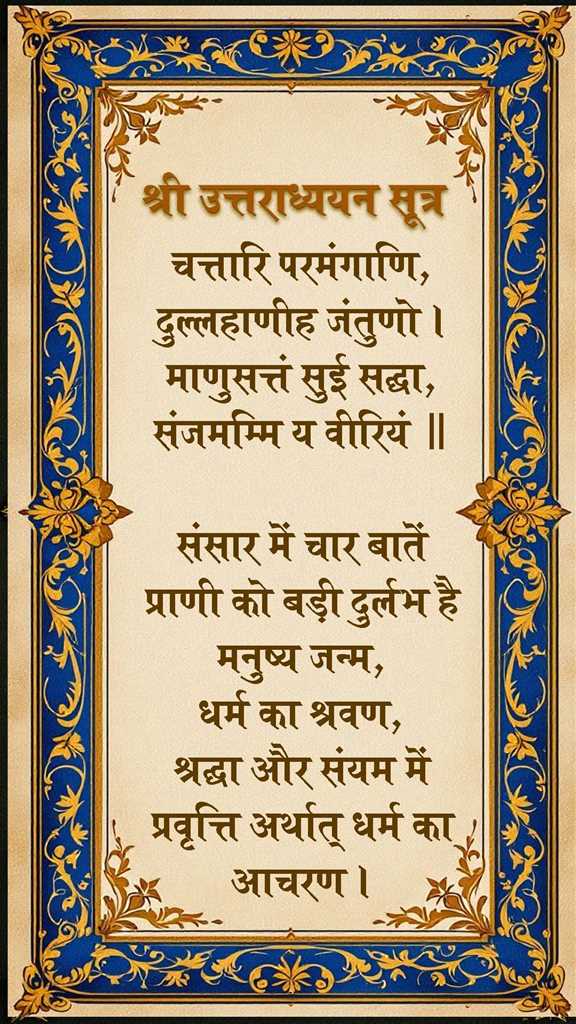 श्री उत्तराध्ययन सूत्र
चत्तारि परमंगाणि,
दुल्लहाणीह जंतुणो ।
माणुसत्तं सुई सद्धा,
संजमम्मि य वीरियं ॥
संसार में चार बातें
प्राणी को बड़ी दुर्लभ है
मनुष्य जन्म,
धर्म का श्रवण,
श्रद्धा और संयम में
प्रवृत्ति अर्थात् धर्म का
आचरण ।